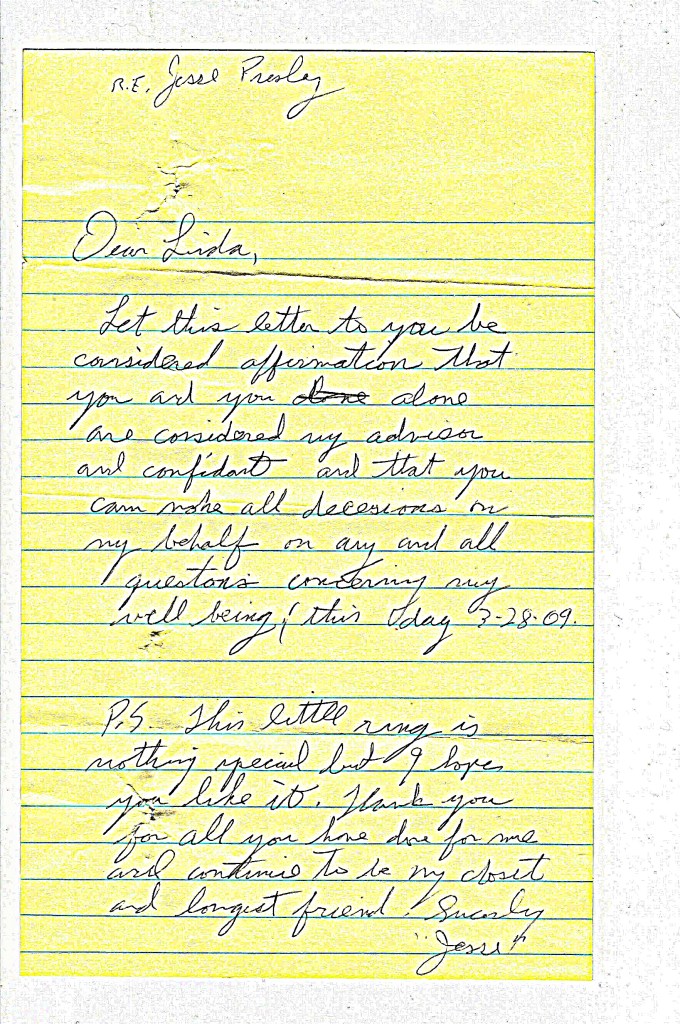 R.E. Jesse Presley
Dear Linda,
Let this letter to you be
considered affirmation that
you and you alone
are considered my advisor
and confidant and that you
cam make all decesions on
my behalf on any and all
questons concerning my
well being, this day 3-28-09.
P.S. This little ring is
nothing special but I hope
you like it. Thank you
for all you have done for me
and continue to be my closet
and longest friend! Sincerly
"Jesse"